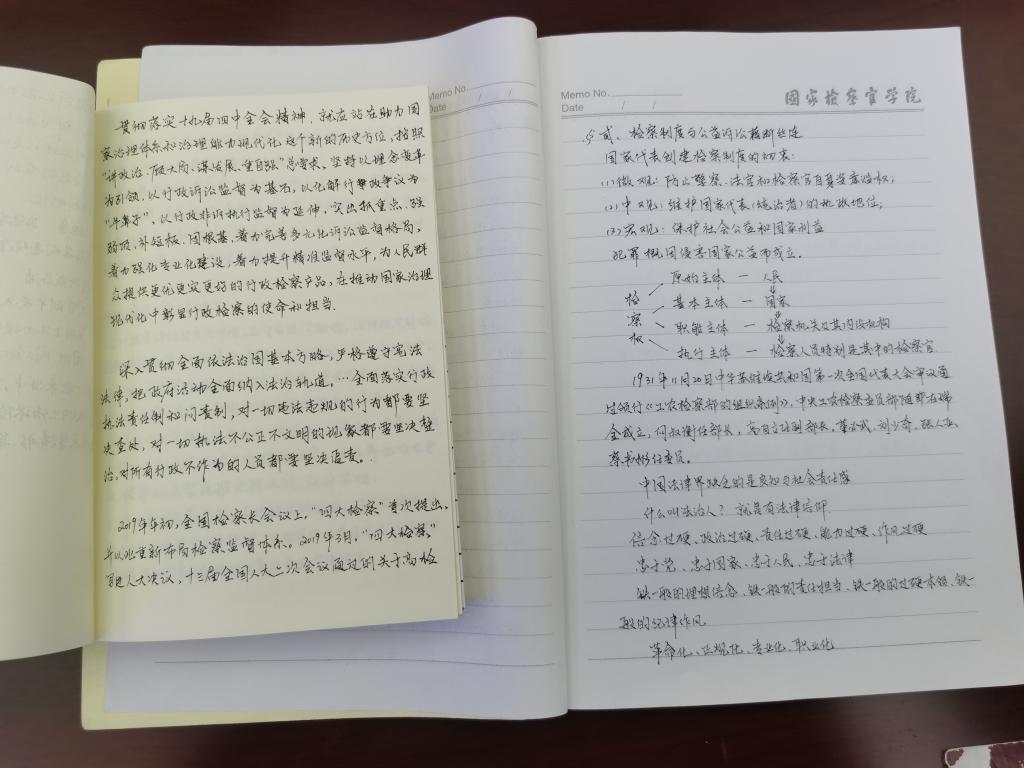 贯彻落实十九届四中全会精神，就应站在助力国
家治理体系和治理能力现代化这个新的历史方位，按照
“讲政治、顾大局、谋发展、重自强”总要求，坚持以理念变革
为引领，以行政诉讼监督为基石，以化解行政争议为
“牛鼻子”，以行政非诉执行监督为延伸，突出抓重点、强
弱项、补短板、固根基，着力完善多元化诉讼监督格局，
着力强化专业化建设，着力提升精准监督水平，为人民群
众提供更优更实更好的行政检察产品，在推动国家治理
现代化中彰显行政检察的使命和担当.
深入贯彻全面依法治国基本方略，严格遵守宪法
法律，把政府活动全面纳入法治轨道，…全面落实行政
执法责任制和问责制，对一切违法违规的行为都要坚
决查处，对一切执法不公正不文明的现象都要坚决整
治，对所有行政不作为的人员都要坚决追查。
2019年年初，全国检察长会议上，“四大检察”首次提出、
并以此重新布局检察监督体系。2019年3月，“四大检察”
写进人大决议，十三届全国人大二次会议通过的关于高检
Memo No.
Date / /
Memo No.
Date / /
国家检察官学院
贰、检察制度与公益诉讼
国家代表创建检察制度的初衷：
(1)微观：防止警察、法官和检察官自身
(2)中观：维护国家代表(统治者)的执政地位；
(3)宏观：保护社会公益和国家利益
犯罪概因侵害国家公益而成立.
检察权
原始主体 — 人民
基本主体 — 国家
职能主体 — 检察机关及其内设机构
执行主体 — 检察人员特别是其中的检察官
1931年11月20日中华苏维埃共和国第一次全国代表大会审议通
过颁行《工农检察部的组织条例》，中央工农检察委员部随即在瑞
金成立，何叔衡任部长，高自立任副部长，董必武、刘少奇、张人亚、
任委员。
中国法律界缺乏的是良知与社会责任感
什么叫法治人？就是有法律信仰
信念过硬、政治过硬、责任过硬、能力过硬、作风过硬
忠于党、忠于国家、忠于人民、忠于法律
铁一般的理想信念、铁一般的责任担当、铁一般的过硬本领、铁一
般的纪律作风
革命化、正规化、专业化、职业化